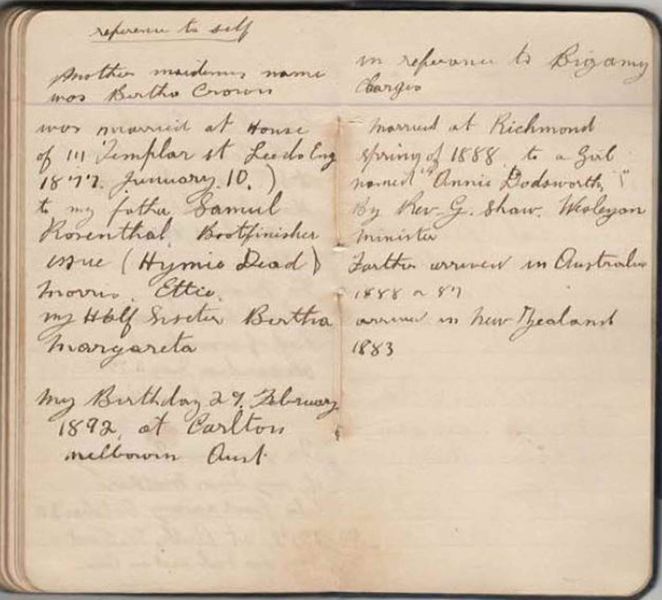 reference to self
Another maidens name
was Bertha Crown
was married at House
of 111 Templar st Leeds Eng
1877. January. 10.)
to my father Samul
Rosenthal. Bootfinisher
issue (Hymie Dead)
Morris. Ettie.
my Half Sister Bertha
Margareta
My Birthday 29. February
1892, at Carlton
Melbourn Aust.
in referance to Bigamy
Charges
Married at Richmond
Spring of 1888. to a Girl
named "Annie Dodsworth,"
By Rev. G. Shaw. Wesleyan
Minister
Farther arrived in Australia
1888 or 87
arrived in New Zealand
1883